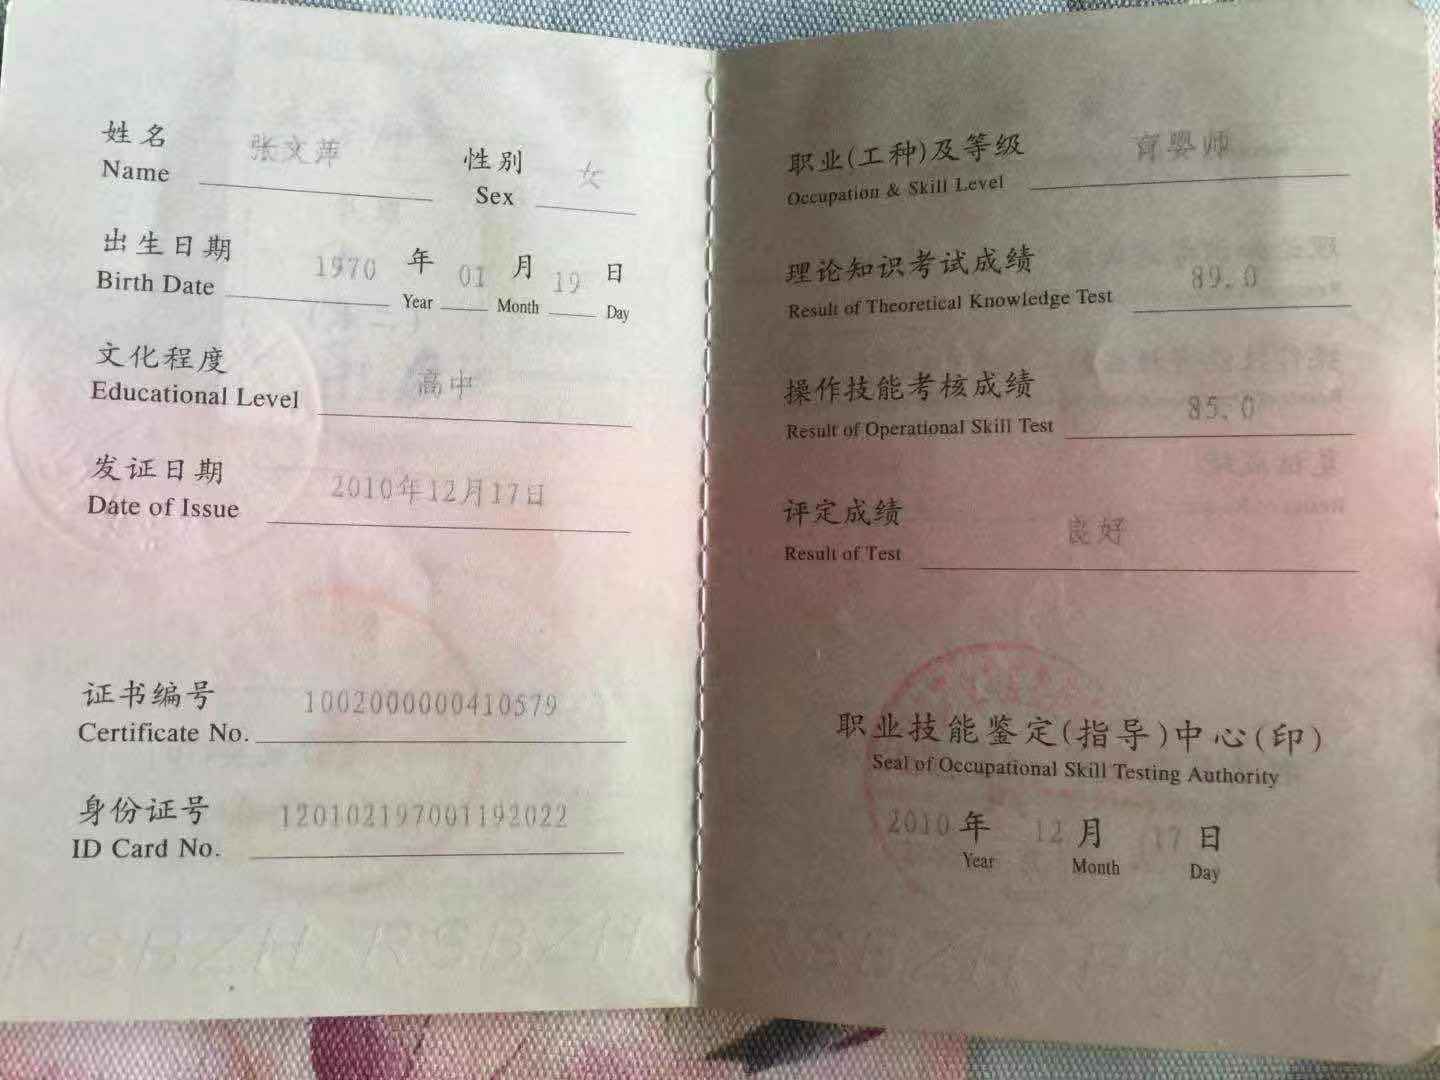 姓名 张文萍 性别 女
Name Sex
出生日期 1970 年 01 月 19 日
Birth Date Year Month Day
文化程度 高中
Educational Level
发证日期 2010年12月17日
Date of Issue
证书编号 1002000000410579
Certificate No.
身份证号 120102197001192022
ID Card No.
RSBZH RSBZH
职业(工种)及等级 育婴师
Occupation & Skill Level
理论知识考试成绩 89.0
Result of Theoretical Knowledge Test
操作技能考核成绩 85.0
Result of Operational Skill Test
评定成绩 良好
Result of Test
职业技能鉴定(指导)中心(印)
Seal of Occupational Skill Testing Authority
2010 年 12 月 17 日
Year Month Day